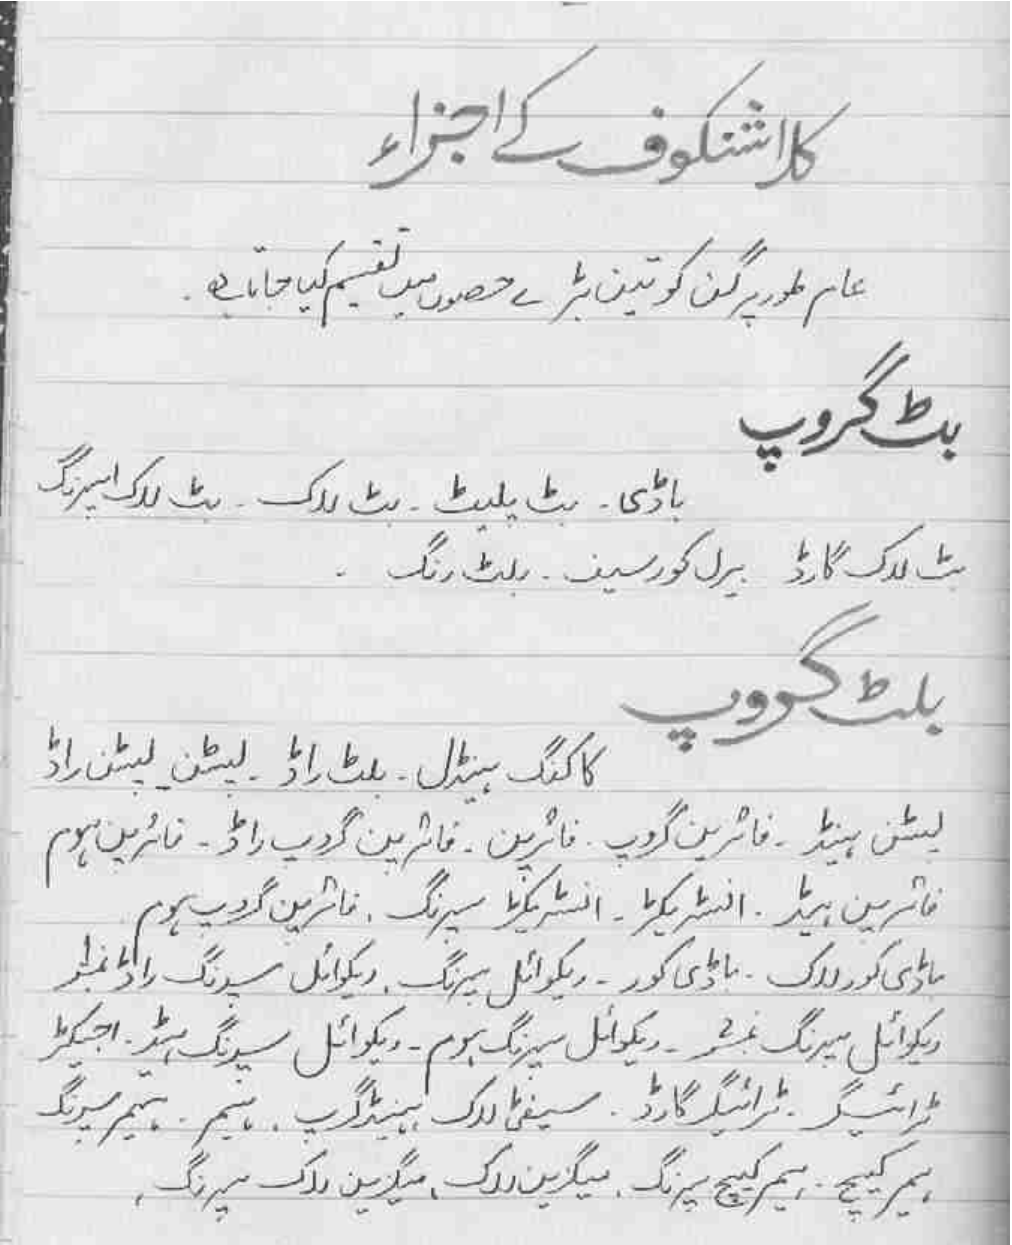 کلاشنکوف کے اجزاء
عام طور پر گن کو تین بڑے حصوں میں تقسیم کیا جاتا ہے۔
بٹ گروپ
باڈی۔ بٹ پلیٹ۔ بٹ لاک۔ بٹ لاک اسپرنگ
بٹ لاک گارڈ بیرل کور سیف۔ بلٹ رنگ۔
بلٹ گروپ
کاکنگ ہینڈل۔ بلٹ راڈ۔ لپسٹن۔ لپسٹن راڈ
لپسٹن ہینڈ۔ فائرپن گروپ۔ فائرپن۔ فائرپن گروپ راڈ۔ فائرپن ہوم
فائرپن ہیڈ۔ انسٹریکٹر۔ انسٹریکٹر سپرنگ۔ فائرپن گروپ ہوم
باڈی کور لاک۔ باڈی کور۔ ریکوائل سپرنگ۔ ریکوائل سپرنگ راڈ نمبر
ریکوائل سپرنگ نمبر۔ ریکوائل سپرنگ ہوم۔ ریکوائل سپرنگ ہیڈ۔ اجیکٹر
ٹرائیگر۔ ٹرائیگر گارڈ۔ سیفٹی لاک ہینڈ گرپ۔ ہیمر۔ ہیمر سپرنگ
ہیمر کیچ۔ ہیمر کیچ سپرنگ۔ میگزین لاک۔ میگزین لاک سپرنگ۔